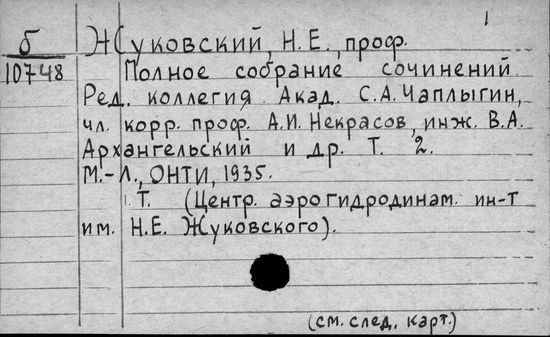 1
б
10748
Жуковский, Н.Е., проф.
Полное собрание сочинений.
Ред. коллегия Акад. С.А. Чаплыгин,
чл. корр. проф. А.И. Некрасов, инж. В.А.
Архангельский и др. Т. 2.
М.-Л., ОНТИ, 1935.
Т. (Центр. аэрогидродинам. ин-т
им. Н.Е. Жуковского).
(см. след. карт.)